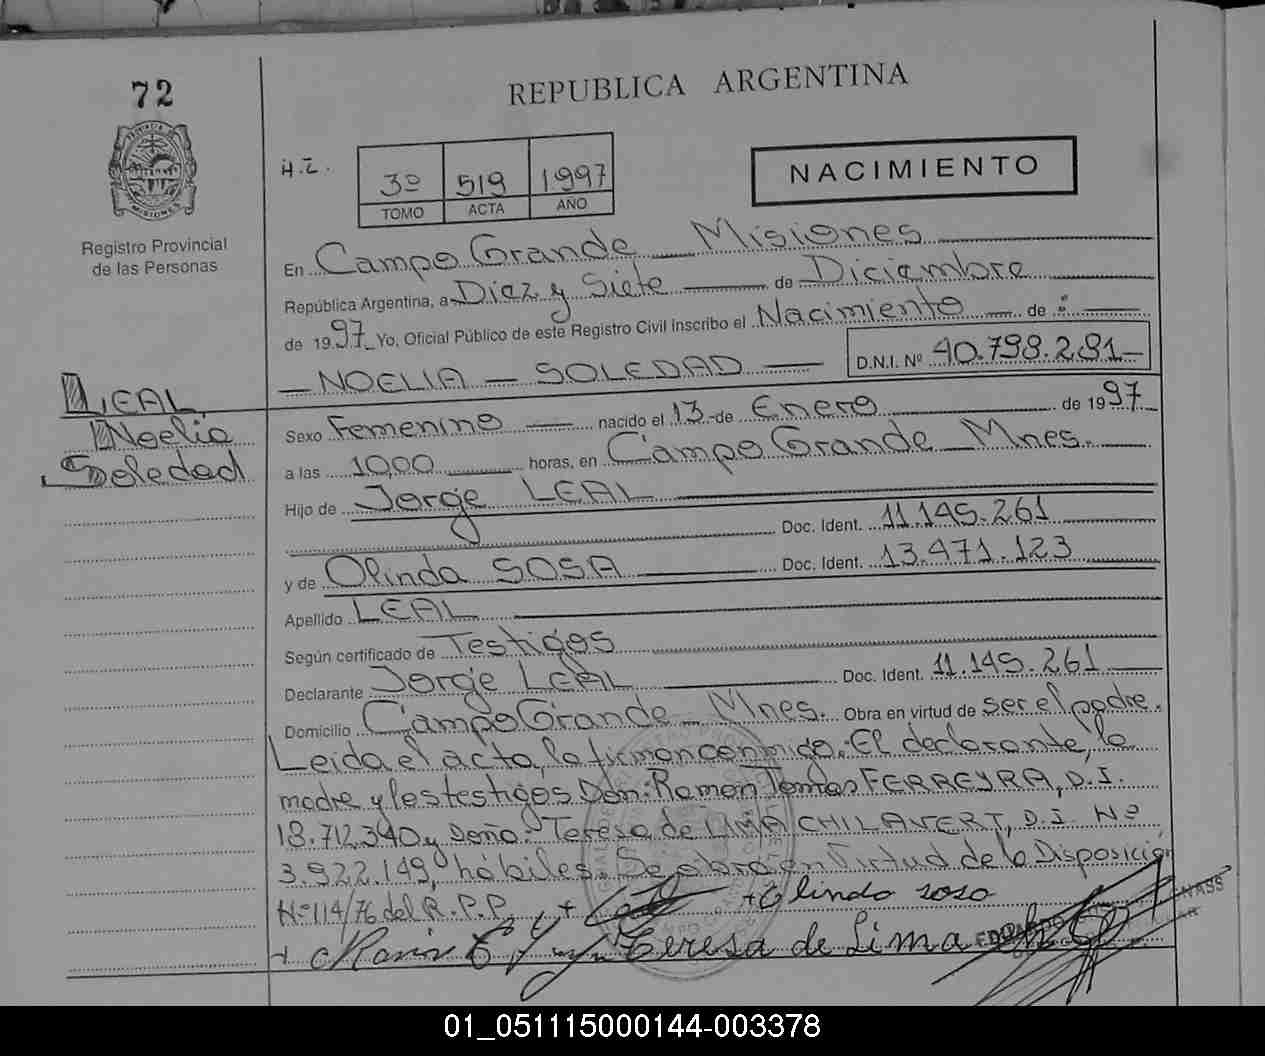 72
REPUBLICA ARGENTINA
PROVINCIA DE MISIONES
Registro Provincial
de las Personas
H.I.
3º 519 1997
TOMO ACTA AÑO
NACIMIENTO
En Campo Grande Misiones
República Argentina, a Diez y Siete de Diciembre
de 1997 Yo, Oficial Público de este Registro Civil inscribo el Nacimiento de :
NOELIA SOLEDAD D.N.I. Nº 40.798.281
LEAL
Noelia
Soledad
Sexo Femenino nacido el 13 de Enero de 1997
a las 10,00 horas, en Campo Grande Mnes.
Hijo de Jorge LEAL
Doc. Ident. 11.145.261
y de Olinda SOSA Doc. Ident. 13.471.123
Apellido LEAL
Según certificado de Testigos
Declarante Jorge LEAL Doc. Ident. 11.145.261
Domicilio Campo Grande Mnes. Obra en virtud de ser el padre.
Leida el acta, la firman conmigo. El declarante, la
madre y los testigos Don: Ramon Tomas FERREYRA, D.I.
18.712.340 y Doña: Teresa de LIMA CHILAVERT, D.I. Nº
3.922.149, hábiles. Se obra en Virtud de la Disposición
Nº 114/76 del R.P.P. + + Olinda sosa
+ Teresa de Lima
01_051115000144-003378